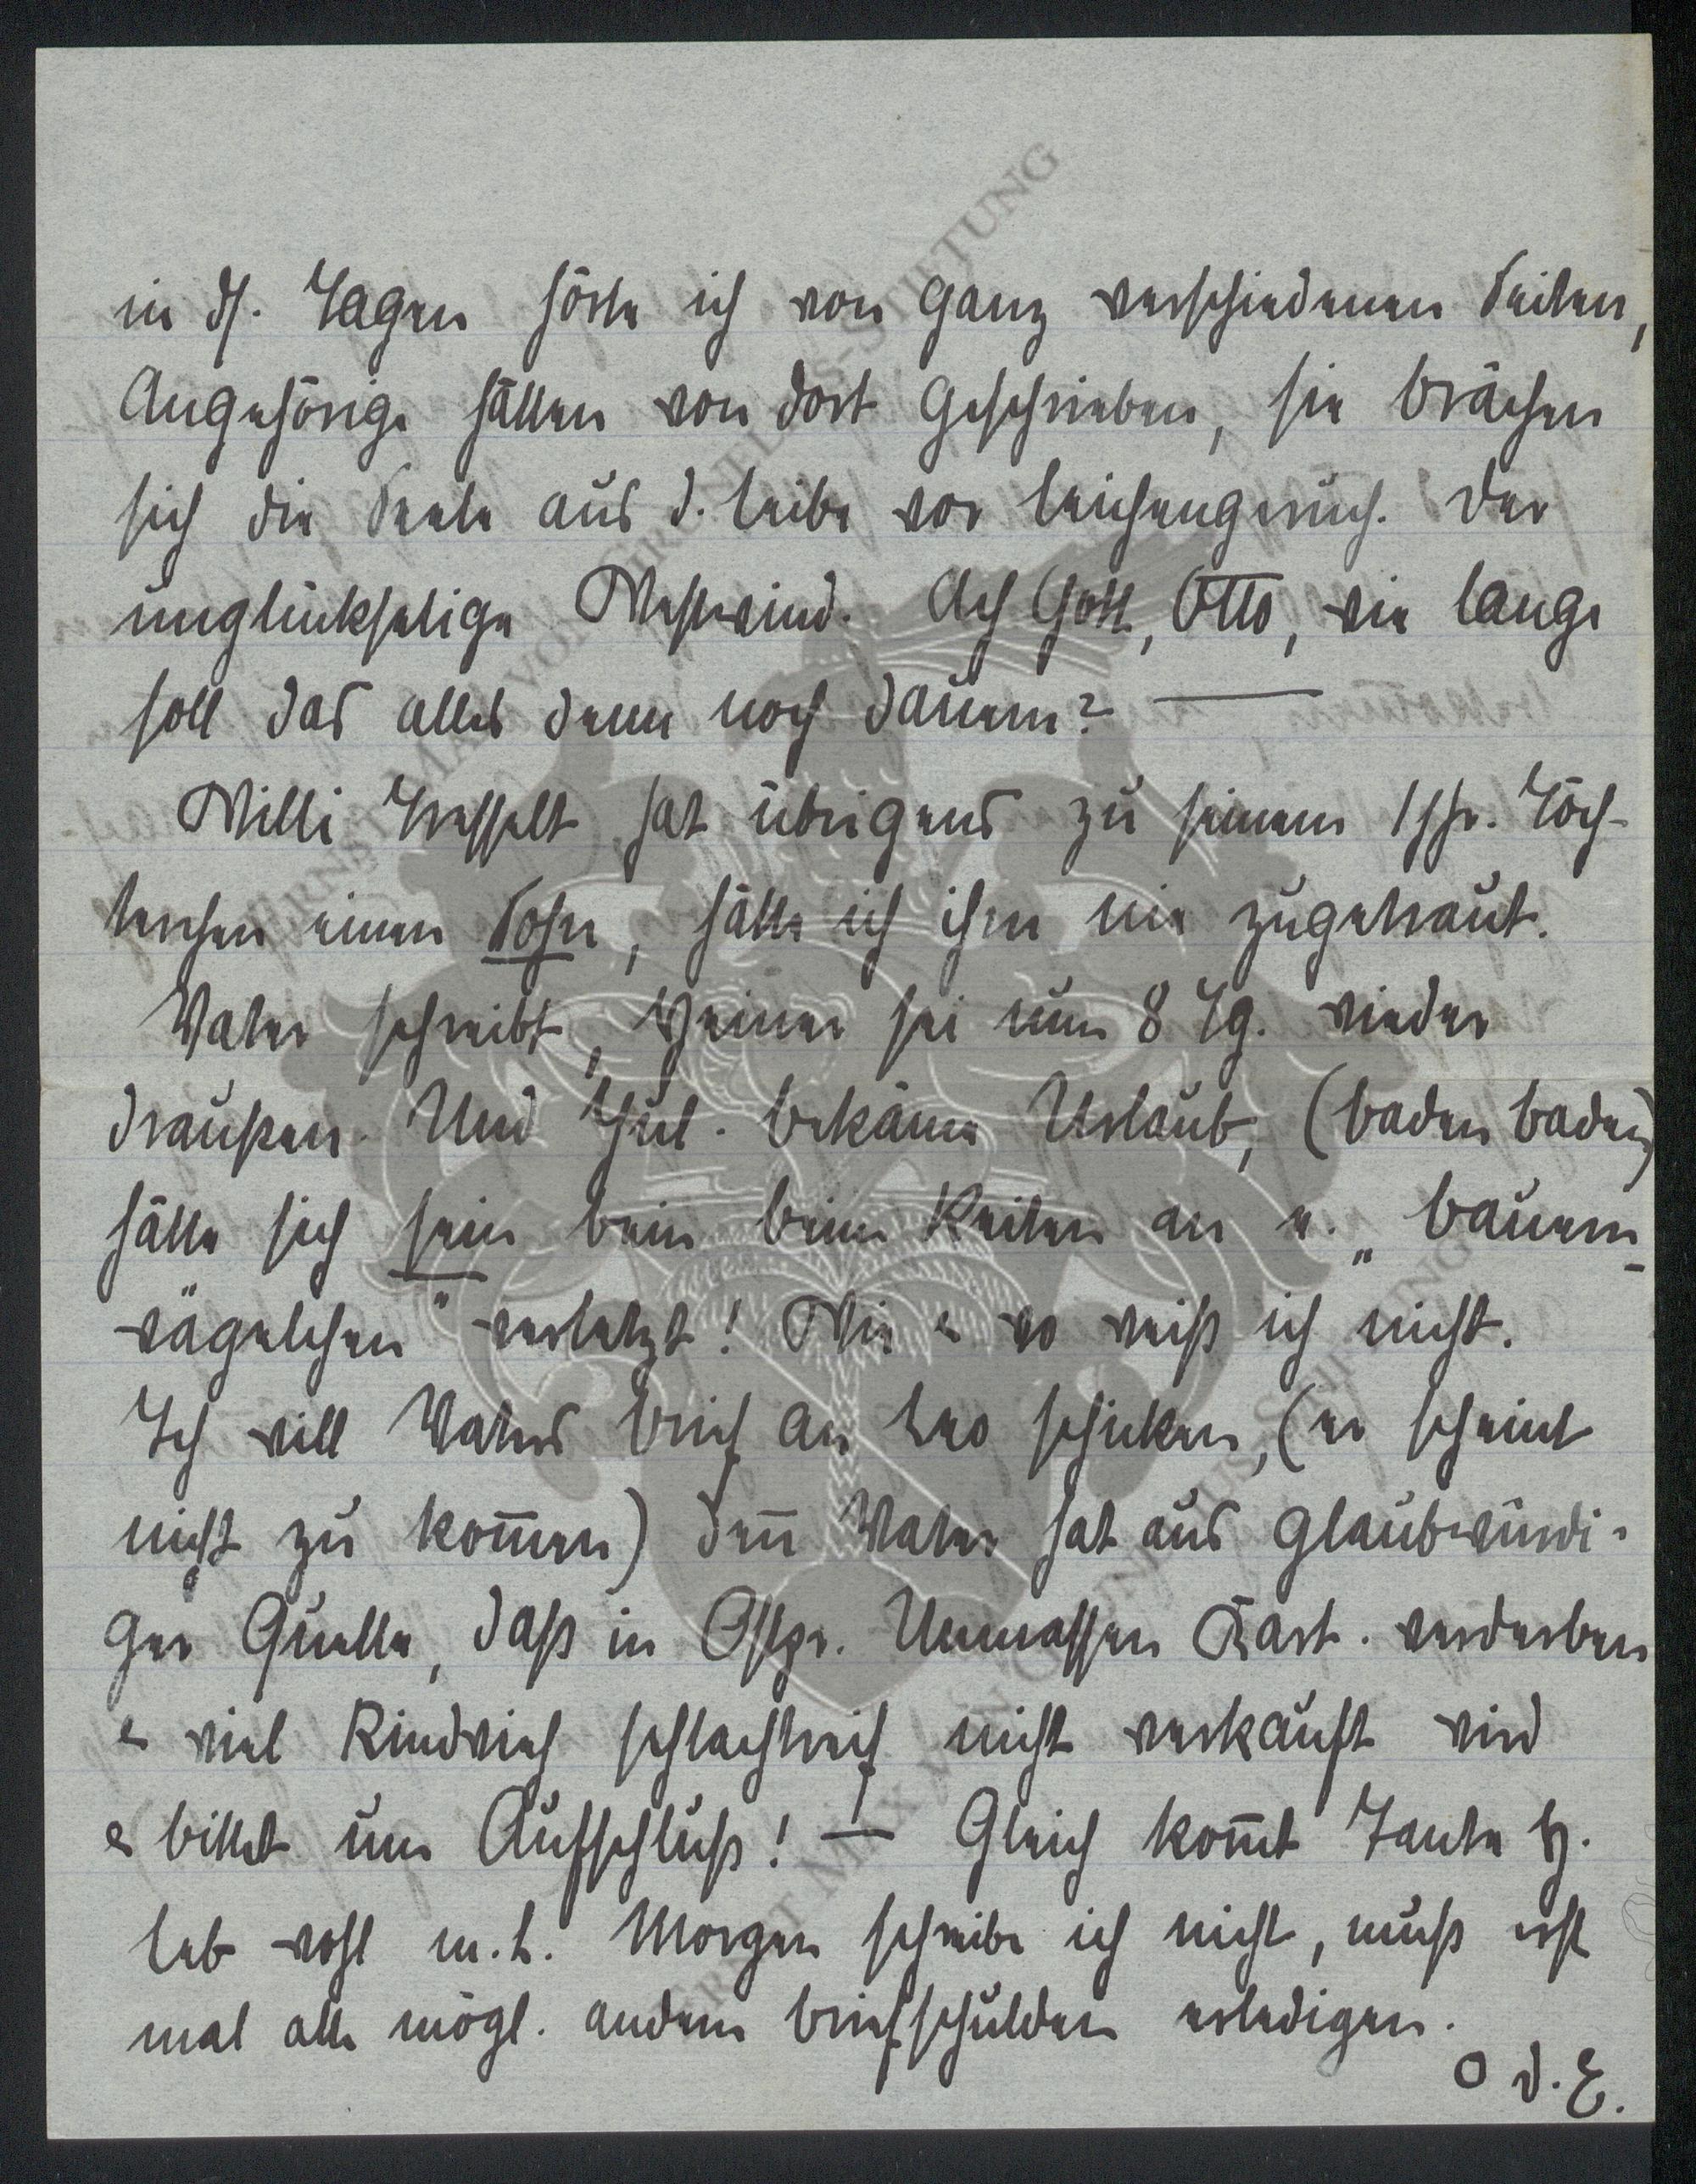 in ds. Tagen hörte ich von ganz verschiedenen Seiten,
Angehörige hätten von dort geschrieben, sie brächen
sich die Seele aus d. Leibe vor Leichengeruch. Der
unglückselige Westwind. Ach Gott, Otto, wie lange
soll das alles denn noch dauern? —
Willi hat übrigens zu seinem Töch-
terchen einen Sohn, hätte ich ihm nie zugetraut.
Vater schreibt, Heiner sei nun 8 Tg. wieder
draußen. Und Jul. bekäme Urlaub, (Baden Baden)
hätte sich sein Bein beim Reiten an e. „Bauern-
wägelchen" verletzt! Wie & wo weiß ich nicht.
Ich will Vaters Brief an Leo schicken, (er scheint
nicht zu kom̅en) den̅ Vater hat aus glaubwürdi-
ger Quelle, daß in Ostpr. Unmassen Kart. verderben
& viel Rindvieh schlachtreif nicht verkauft wird
& bittet um Aufschluß! — Gleich kom̅t Tante H.
Leb wohl m. L. Morgen schreibe ich nicht, muß erst
mal alle mögl. andern Briefschulden erledigen.
O d. E.
ERNST MAX VON GRUNELIUS-STIFTUNG
ERNST MAX VON GRUNELIUS-STIFTUNG